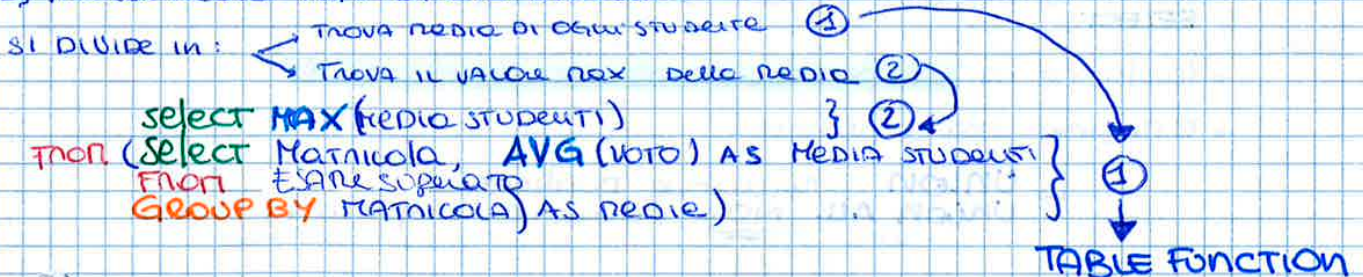 SI DIVIDE IN:
TROVA MEDIA DI OGNI STUDENTE 1
TROVA IL VALORE MAX DELLA MEDIA 2
SELECT MAX(MEDIA STUDENTI) } 2
FROM (SELECT MATRICOLA, AVG (VOTO) AS MEDIA STUDENTI
FROM ESAME SUPERATO
GROUP BY MATRICOLA) AS MEDIE) } 1
TABLE FUNCTION